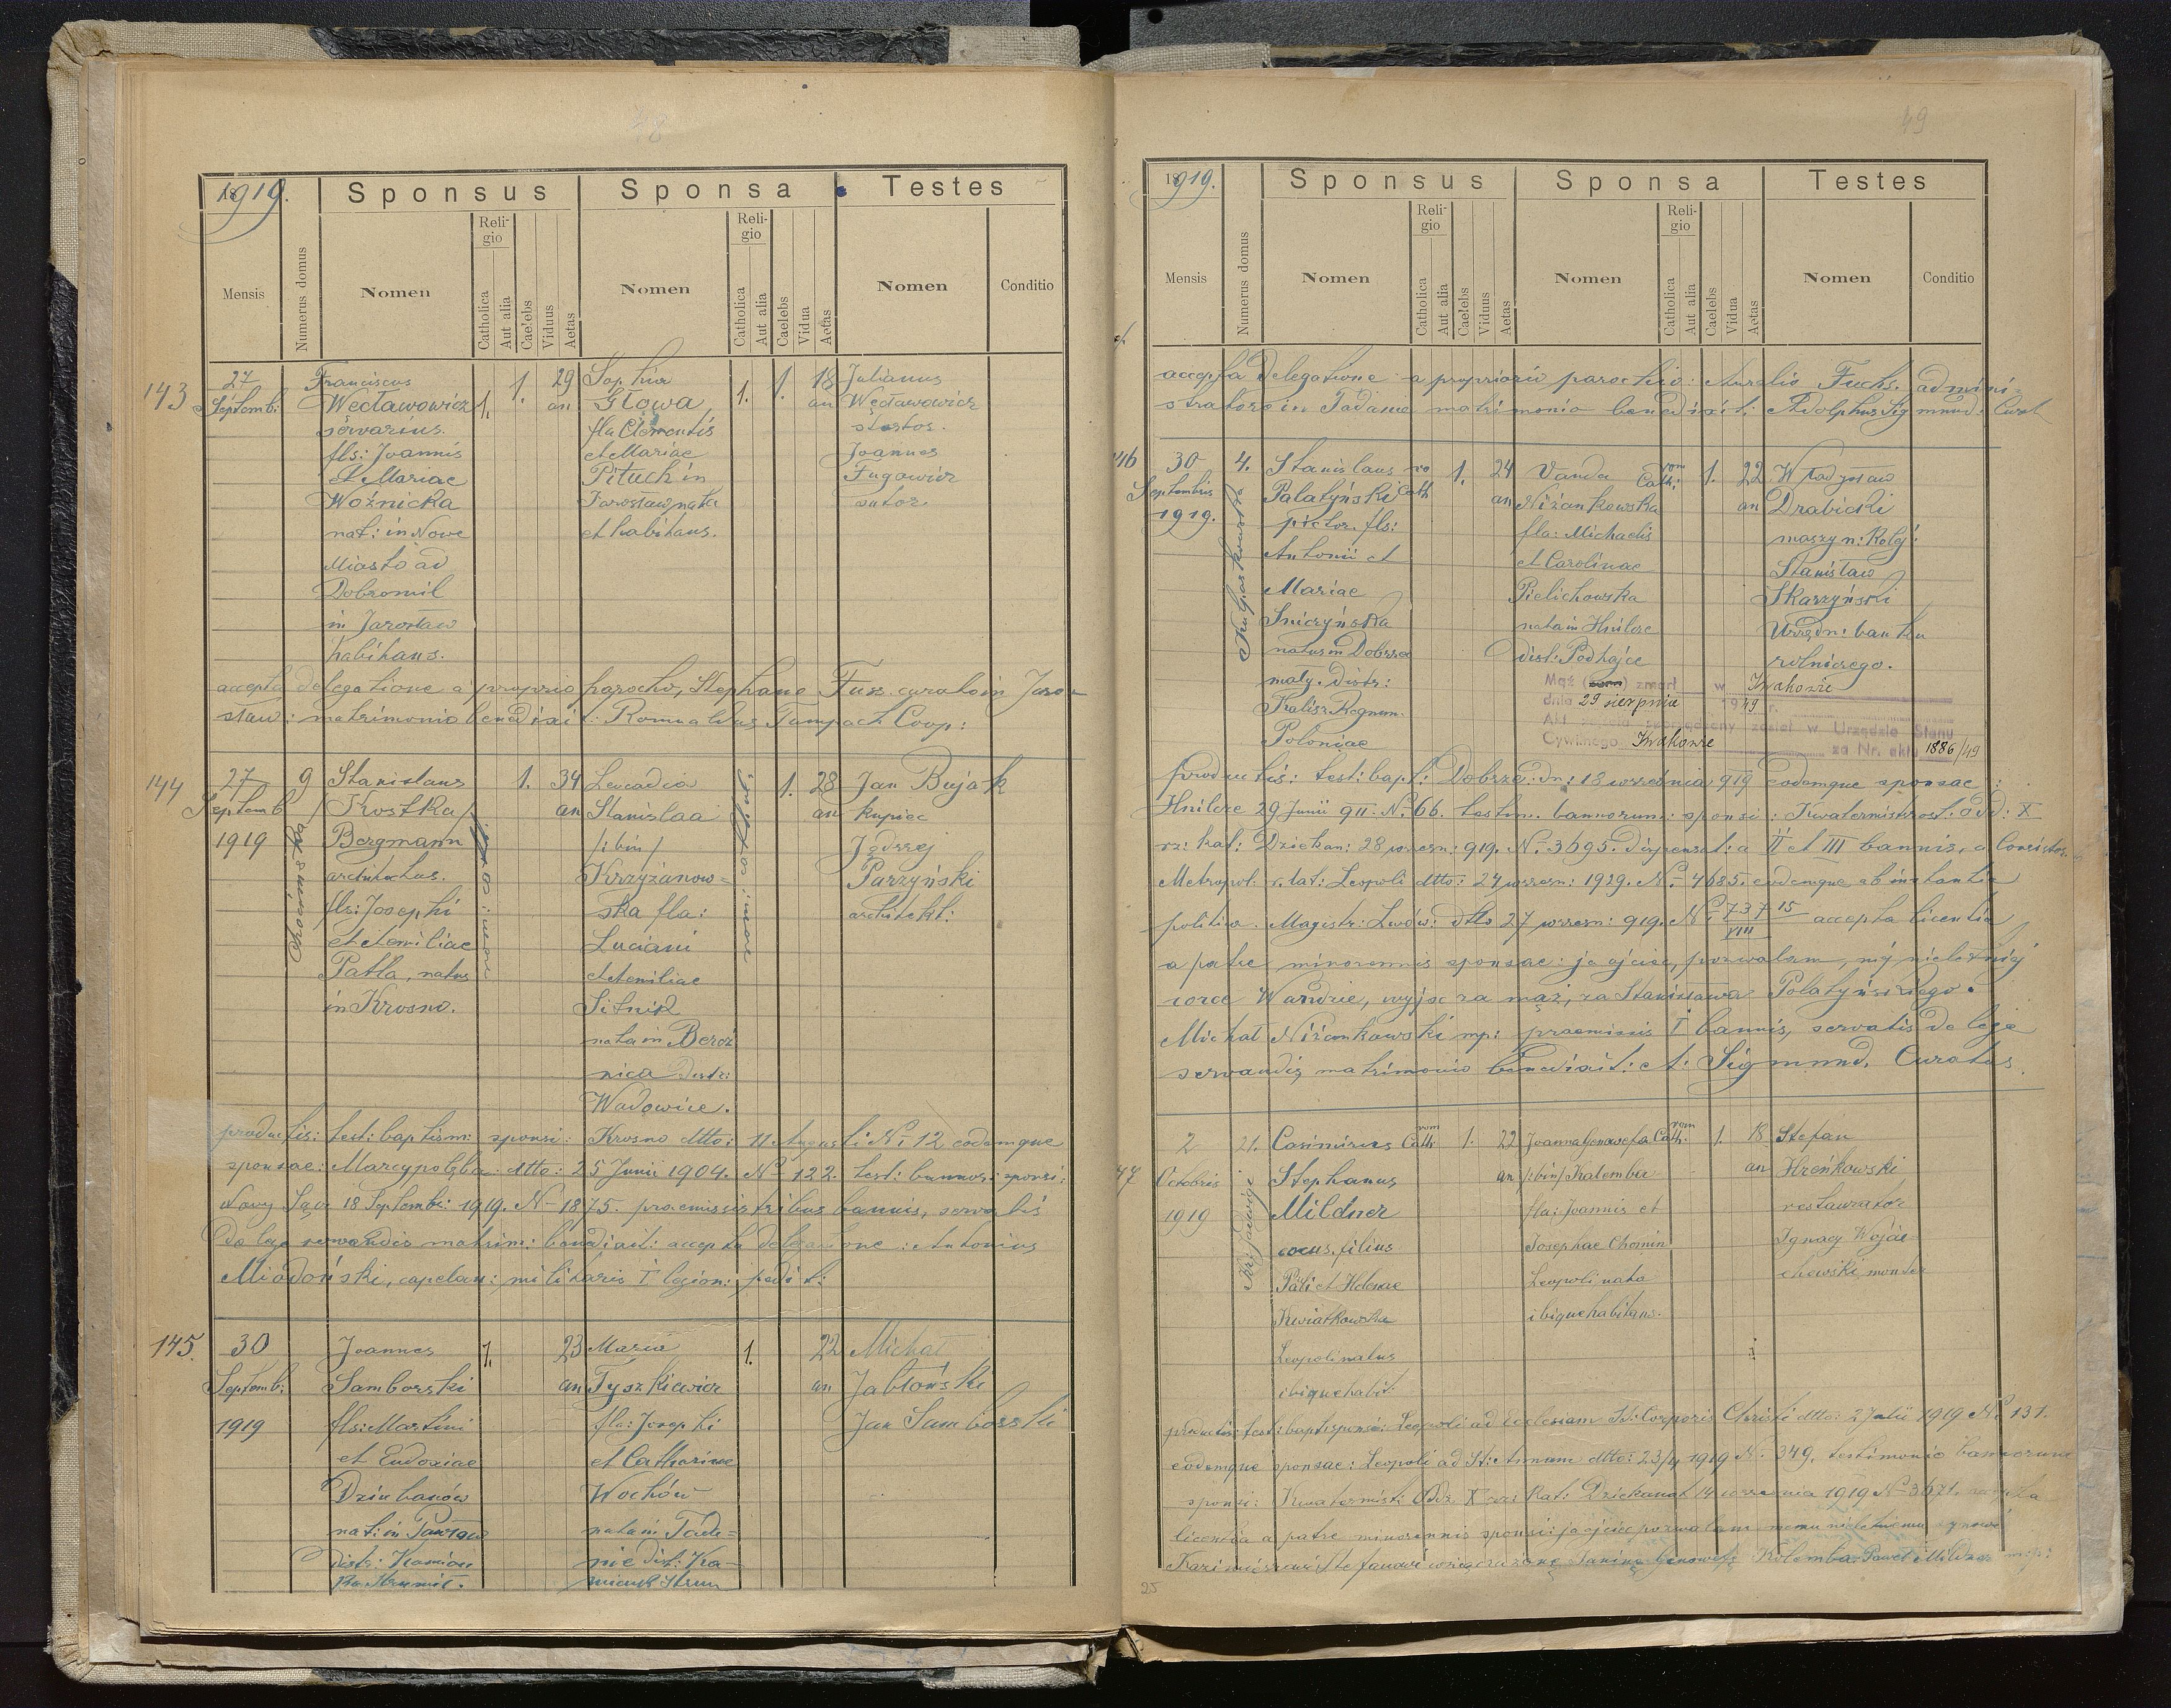 1919.
Sponsus Sponsa Testes
Religio Religio
Mensis Numerus domus Nomen Catholica Aut alia Caelebs Viduus Aetas Nomen Catholica Aut alia Caelebs Vidua Aetas Nomen Conditio
143
27
Septemb:
Franciscus
Węcławowicz
fls: Joannis
et Mariae
Woźnicka
nat: in Nowe
Miasto ad
Dobromil
in Jarosław
habitans.
1. 1. 29
an
Sophia
Głowa
fla Clementis
et Mariae
Pituch in
Jarosław nata
et habitans.
1. 1. 18
an
Julianus
Węcławowicz
Joannes
Fugowicz
sutor
accepta delegatione a proprio parocho, Stephano Fus. curato in Jaro-
sław: matrimonio benedixit: Romualdus Tampach Coop:
144
27
Septemb
1919
9
Stanislaus
/Kostka/
Bergmann
architectus.
fls: Josephi
et Aemiliae
Patla, natus
in Krosno.
1. 34
an
Leucadia
Stanislaa
/:bin/
Krzyżanow=
ska fla:
Luciani
et Aemiliae
Sitnik
nata in
nica distr:
Wadowice.
1. 28
an
Jan Bujak
kupiec
Jędrzej
Parzyński
architekt:
productis: test: baptism: sponsi: Krosno dtto: 11 Augusti No 12 eodemque
sponsae: Marcyporęba dtto: 25 Junii 1904. No 122. test: bannor: sponsi:
Nowy Sącz 18 Septemb: 1919. N- 1875. praemissis tribus bannis, servatis
de lege servandis matrim: benedixit: accepta delegatione: Antonius
Miodoński, capelan: militaris I legion: pedit:
145.
30
Septemb:
1919
Joannes
Samborski
fls: Martini
et Eudoxiae
Dziubanów
nat: in
distr: Kamion
ka Strumił.
1. 23
an
Maria
Tyszkiewicz
fla: Josephi
et Catharinae
Wochów
nata in Tada=
nie dist: Ka-
mionk Strum
1. 22
an
Michał
Jabłoński
Jan Samborski
49
1919.
Sponsus Sponsa Testes
Religio Religio
Mensis Numerus domus Nomen Catholica Aut alia Caelebs Viduus Aetas Nomen Catholica Aut alia Caelebs Vidua Aetas Nomen Conditio
accepta delegatione a proprio parocho: Aurelio Fuchs. admini-
stratore in Tadanie matrimonio benedixit: Adolphus Sigmund: Curat
146
30
Septembris
1919.
4.
Stanislaus
Palatyński
pictor. fls:
Antonii et
Mariae
Śniczyńska
natus in Dobrzec
mały. distr:
Kalisz Regnum
Poloniae
ro cath 1. 24
an
Vanda
Niżankowska
fla: Michaelis
et Carolinae
Pielichowska
nata in Hnilcze
dist: Podhajce
rom Cath: 1. 22
an
Władysław
Drabicki
maszyn: Kolej:
Stanisław
Skarzyński
Urzędn: banku
rolniczego.
Mąż zmarł w Krakowie
dnia 29 sierpnia 1949 r.
Akt sporządzony został w Urzędzie Stanu
Cywilnego Krakowie za Nr. aktu 1886/49
productis: test: bapt: Dobrzec: dn: 18 września 919 eodemque sponsae:
Hnilcze 29 Junii 911. No 66. testim. bannorum: sponsi: Kwatermistrzost. Odd: X
rz: kat: Dziekan: 28 wrzesn: 919. No 3695. dispensat: a II et III bannis, a Consistor.
Metropol: r. lat: Leopoli dtto: 24 wrzesn: 1929. No 4685. eodemque ab instantia
politica. Magistr: Lwów: dtto 27 wrzesn: 919. No 737 15/VIII accepta licentia
a patre minorennis sponsae: ja ojciec, pozwalam, mej nieletniej
córce Wandzie, wyjść za mąż, za Stanisława Polatyńskiego.
Michał Niżankowski mp: praemissis I bannis, servatis de lege
servandis matrimonio benedixit: A: Sigmund. Curatus.
47
2
Octobris
1919
21.
Casimirus
Stephanus
Mildner
cocus, filius
Pauli et Helenae
Kwiatkowska
Leopoli natus
ibique habit:
rom Cath: 1. 22
an
Joanna Genowefa
/:bin/ Kalemba
fla: Joannis et
Josephae Chomin
Leopoli nata
ibique habitans.
rom Cath: 1. 18
an
Stefan
Hreńkowski
restaurator
Ignacy Wojcie
chowski, monter
productis: test: bapt: sponsi: Leopoli ad Ecclesiam SS: Corporis Christi dtto: 2 Julii 1919 No 131.
eodemque sponsae: Leopoli ad St: Annam dtto: 23/4 1919 No 349, testimonio bannorum
sponsi: Kwatermistr: Odd: X rz: Kat: Dziekanat 14 września 1919 No 3671. accepta
licentia a patre minorennis sponsi: ja ojciec pozwalam memu nieletniemu synowi
Kazimierzowi Stefanowi wziąć za żonę Janinę Genowefę Kolemba. Paweł Mildner mp:
25